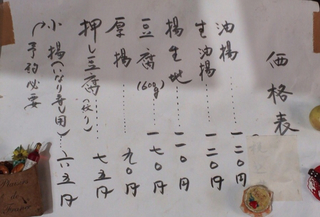 価格表
油揚……一二〇円
生油揚……一二〇円
揚生地……一一〇円
豆腐(600g)……一七〇円
厚揚……九〇円
押し豆腐……七五円
小揚(いなり寿し用)……六五円
予約必要